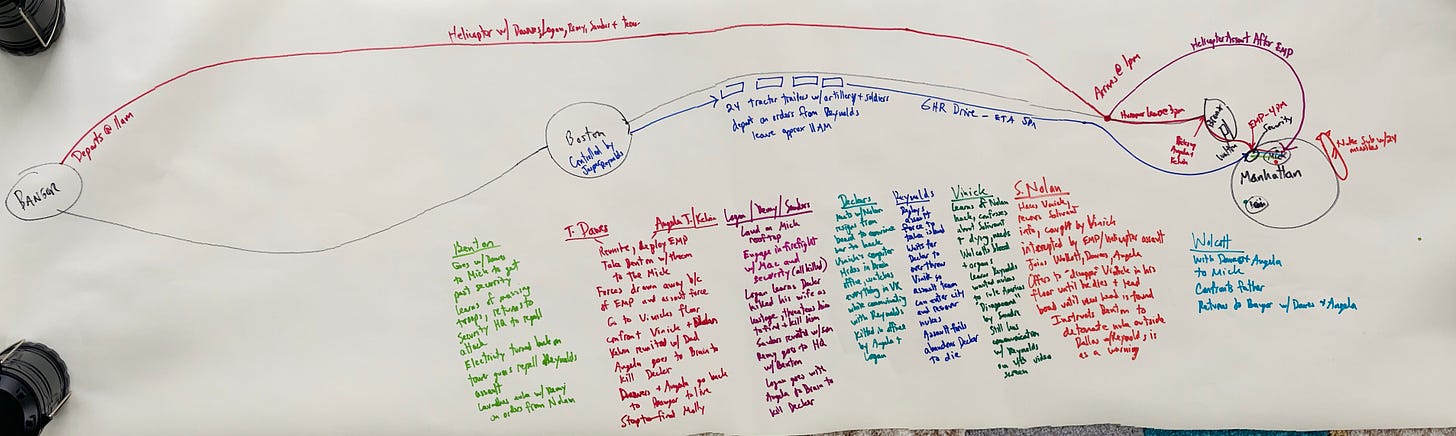 Helicopter w/ Dawes, Logan, Remy, Sanders + team
Departs @ 11am
BANGOR
Boston
Controlled by
Reynolds
24 tractor trailers w/ artillery + soldiers
depart on orders from Reynolds
leave approx 11AM
6HR Drive - ETA 5PM
Arrives @ 1pm
Helicopter Assault After EMP
Humvee leaves 3pm
Bronx
EMP-4PM
Security
Angela +
Kelvin
Mick
Manhattan
Nuke Sub w/ 24
missiles
Benton
Goes w/ Dawes
to Mick to get
past security
learns of moving
troops, returns to
Security HQ to repell
attack
Electricity turned back on
tower guns repell Reynolds
assault
Launches nuke w/ Remy
on orders from Nolan
T. Dawes
Angela T./Kelvin
Reunite, deploy EMP
Take Benton w/ them
to the Mick
Forces drawn away b/c
of EMP and assault force
Go to Vinicks floor
confront Vinick +
Kelvin reunited w/ Dad
Angela goes to Brain to
kill Decker
Dawes + Angela go back
to Bangor to live
Stop to find Molly
Logan / Remy / Sanders
Land on Mick
rooftop
Engage in firefight
w/ Mac and
security (all killed)
Logan learns Decker
killed his wife as
threatens him
kill him
Sanders reunited w/ son
Remy goes to HQ
w/ Benton
Logan goes with
Angela to Brain to
kill Decker
Deckers
Meets w/ Nolan
resign from
board to convince
her to hack
Vinick's computer
Hides in Brain
office, watches
everything in VR
while communicating
with Reynolds
Killed in office
by Angela +
Logan
Reynolds
Deploys
assault
force to
take island
Waits for
Decker to
overthrow
Vinick so
assault team
can enter city
and recover
nukes
Assault fails
abandons Decker
to die
Vinick
Learns of Nolan
hack, confesses
about Solivant
+ dying, needs
Wolcotts blood
+ organs
learns Reynolds
wanted nukes
to rule America
by Sandra
Still has
communication
w/ Reynolds
on VTS video
screen
S. Nolan
Hacks Vinick,
recovers Solivant
info, caught by Vinick
interrupted by EMP/helicopter assault
Joins Wolcott, Dawes, Angela
Offers to Vinick in his
floor until he dies + lead
board until new head is found
Instructs Benton to
detonate nuke outside
Dallas + Reynolds is
as a warning
Wolcott
With Dawes + Angela
to Mick
Confronts father
Returns to Bangor w/ Dawes + Angela